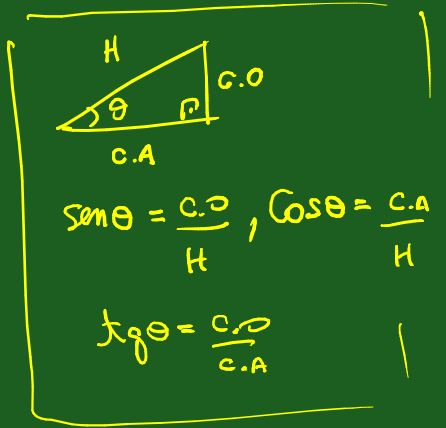 H
C.O
θ
C.A
senθ = C.O / H , Cosθ = C.A / H
tgθ = C.O / C.A